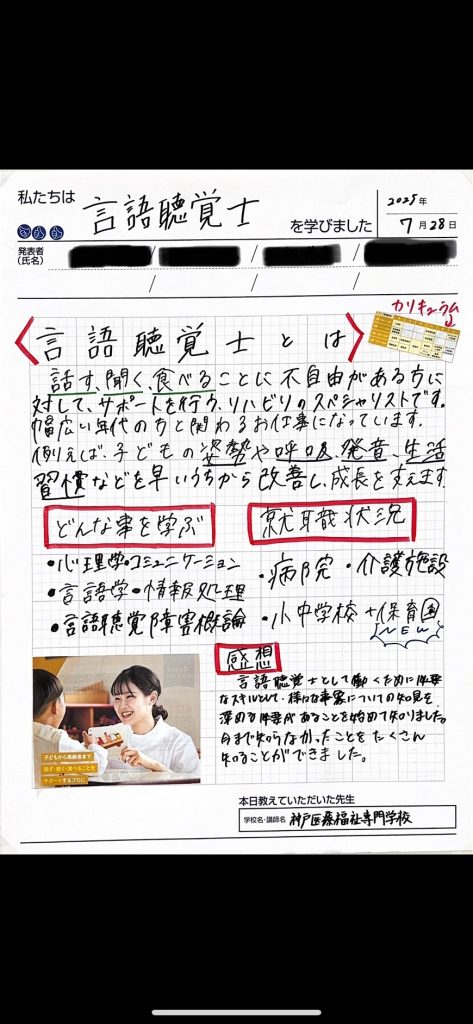 私たちは
言語聴覚士
を学びました
2025年
7月28日
発表者
(氏名)
カリキュラム
言語聴覚士とは
話す、聞く、食べることに不自由がある方に
対して、サポートを行う、リハビリのスペシャリストです。
幅広い年代の方と関わるお仕事になっています。
例えば、子どもの姿勢や呼吸、発音、生活
習慣などを早いうちから改善し、成長を支えます。
どんな事を学ぶ
・心理学・コミュニケーション
・言語学・情報処理
・言語聴覚障害概論
就職状況
・病院・介護施設
・小中学校+保育園
NEW
感想
言語聴覚士として働くために必要
なスキルとして、様々な事案についての知見を
深める必要があることを始めて知りました。
今まで知らなかったことをたくさん
知ることができました。
子どもから高齢者まで
話す・聞く・食べることを
サポートするプロに
本日教えていただいた先生
学校名・講師名
神戸医療福祉専門学校